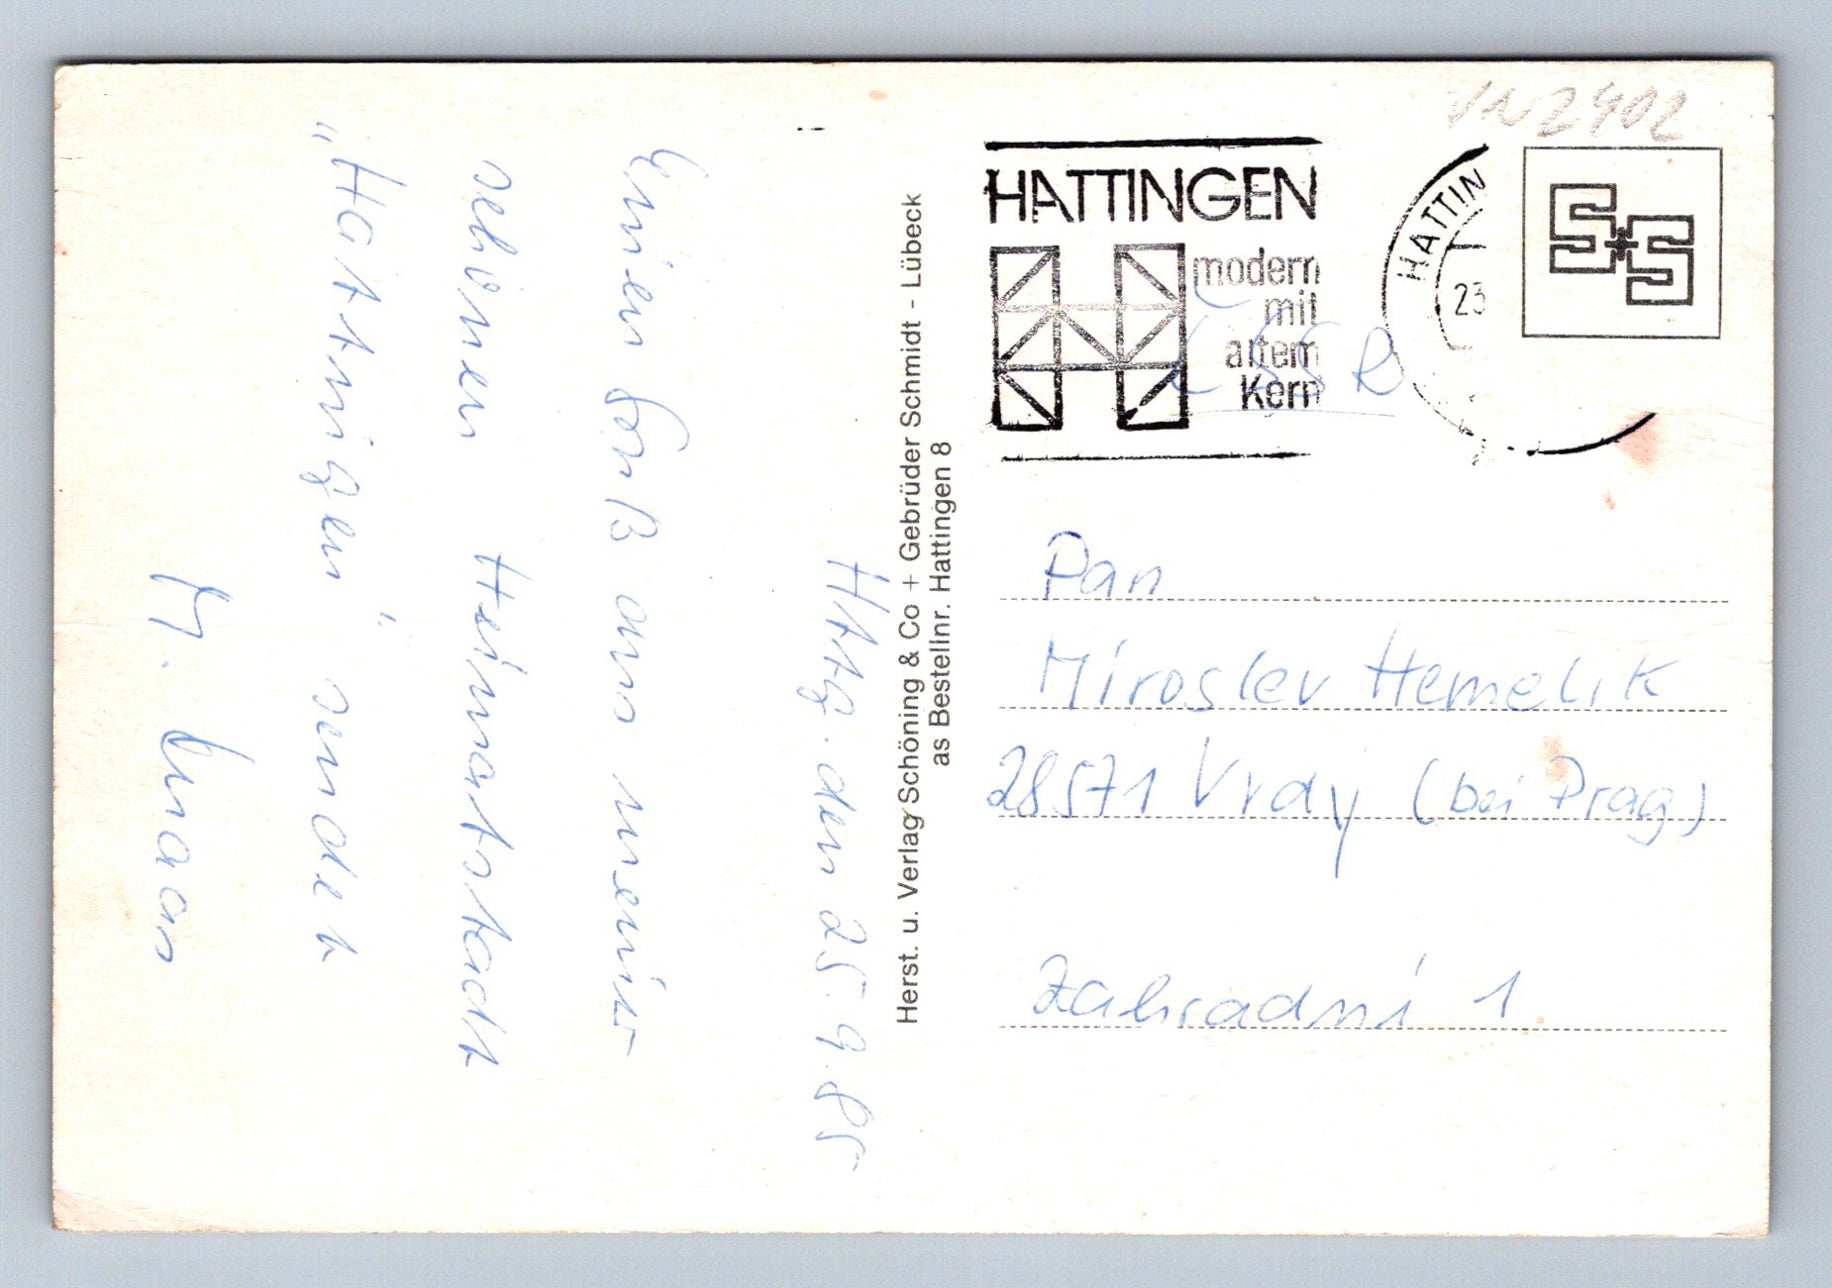 Httg. den 25.9.85
Einen Gruß aus meiner
schönen Heimatstadt
„Hattingen“ sendet
Herst. u. Verlag Schöning & Co + Gebrüder Schmidt - Lübeck
as Bestellnr. Hattingen 8
HATTINGEN
modern
mit
altem
Kern
HATTIN
23
S+S
ČSSR
Pan
Miroslav Hemelik
28571 Vrdy (bei Prag)
Zahradni 1